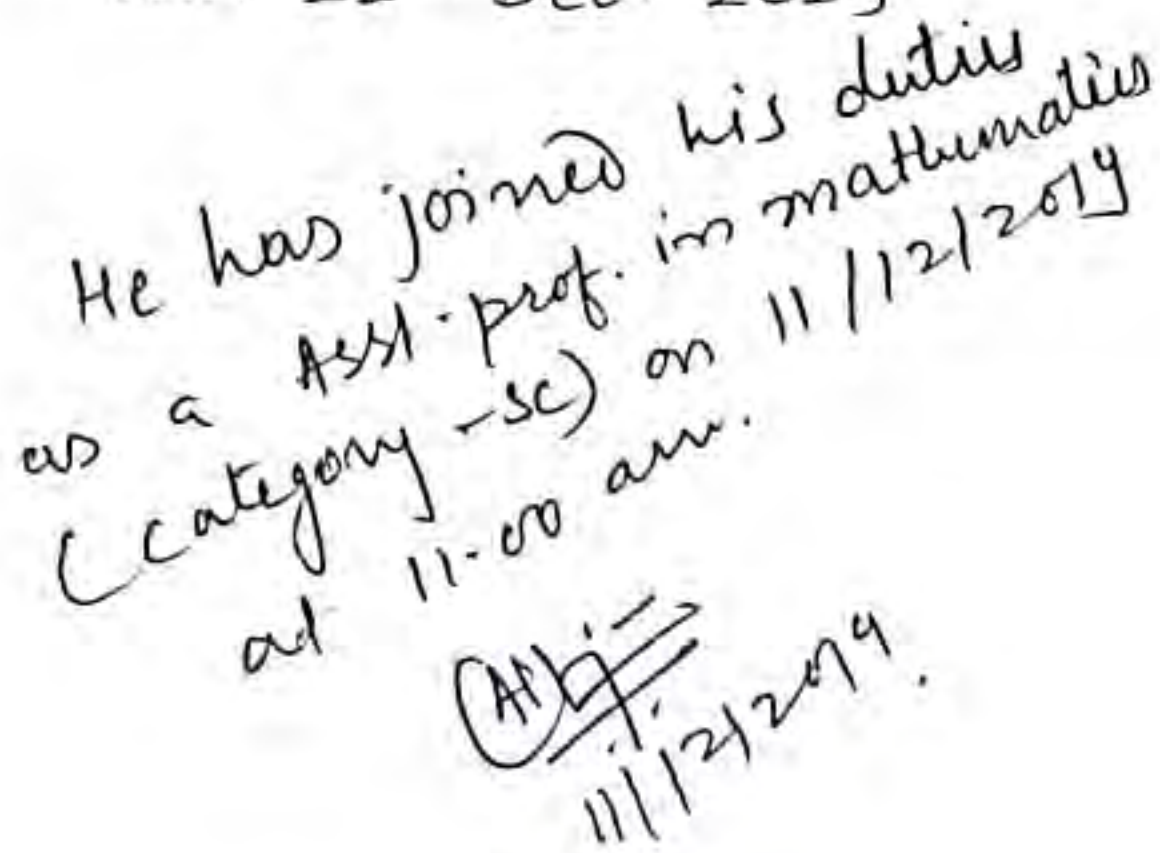 He has joined his duties
as a Asst. prof. in mathematics
(category - SC) on 11/12/2019
at 11-00 am.
11/12/2019.